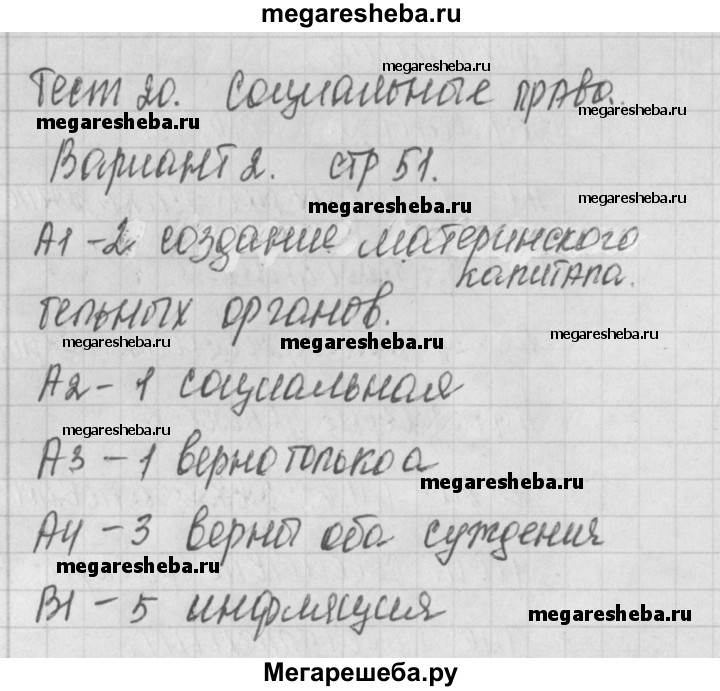 megaresheba.ru
megaresheba.ru
Тест 20. Социальные права.
megaresheba.ru
Вариант 2. стр 51.
megaresheba.ru
megaresheba.ru
А1 - 2. создание материнского
капитала.
megaresheba.ru
тельных органов.
megaresheba.ru
megaresheba.ru
А2 - 1 социальная
megaresheba.ru
А3 - 1 верно только а
megaresheba.ru
А4 - 3 верны оба суждения
megaresheba.ru
В1 - 5 инфляция
megaresheba.ru
Мегарешеба.ру